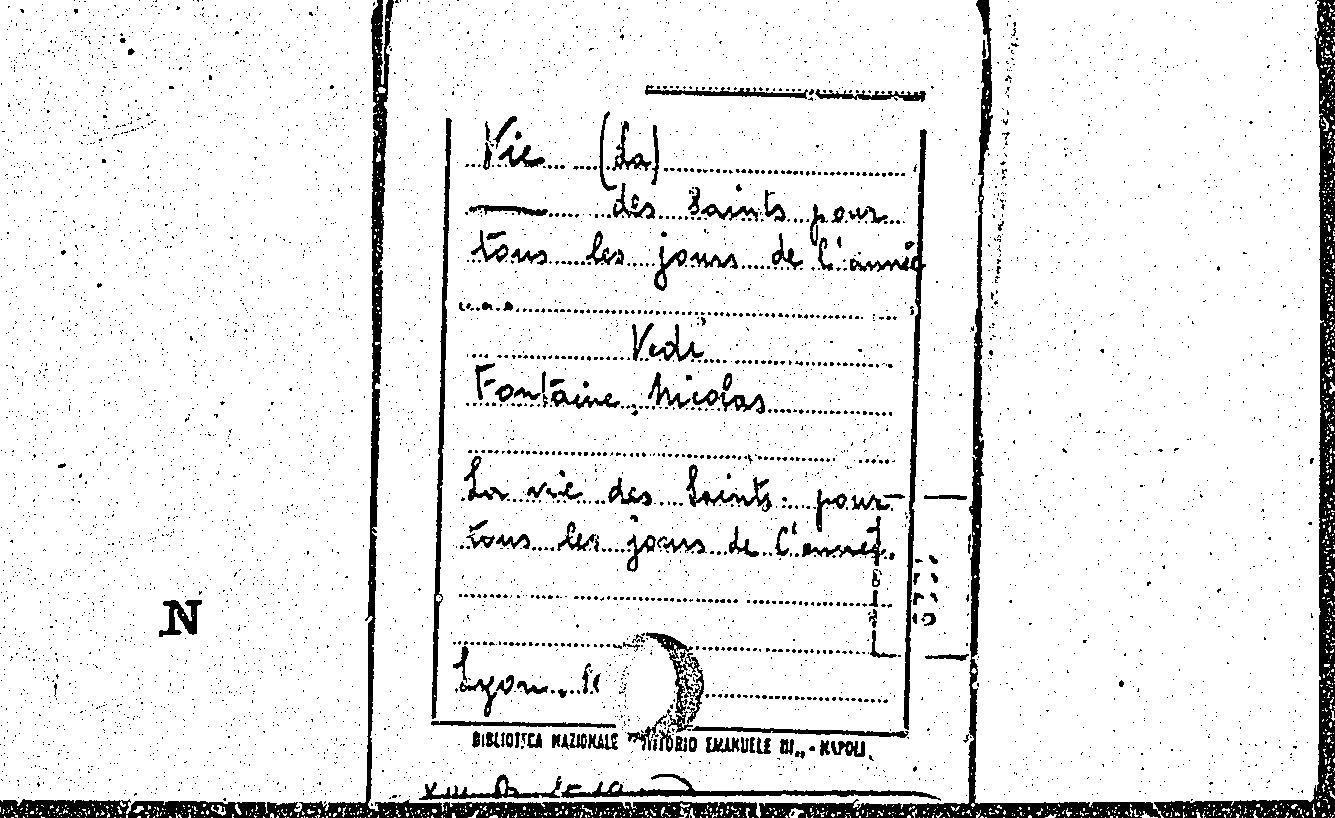 Vie (La)
— des Saints pour
tous les jours de l'année
...
Vedi
Fontaine, Nicolas
La vie des Saints pour
tous les jours de l'année.
Lyon.
BIBLIOTECA NAZIONALE "VITTORIO EMANUELE III" - NAPOLI
N